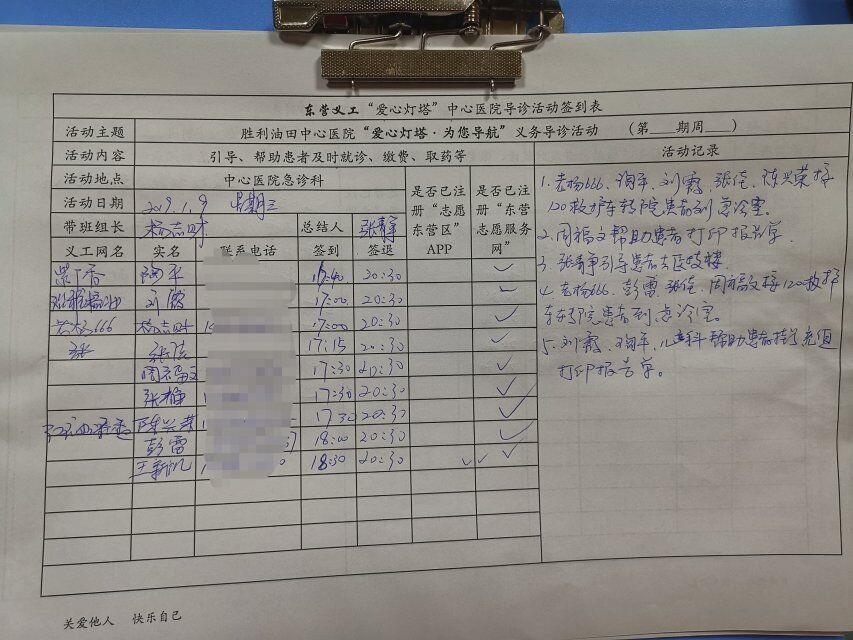 东营义工“爱心灯塔”中心医院导诊活动签到表
活动主题 胜利油田中心医院“爱心灯塔·为您导航”义务导诊活动 （第___期周___）
活动内容 引导、帮助患者及时就诊、缴费、取药等 活动记录
活动地点 中心医院急诊科 是否已注册“志愿东营区”APP 是否已在册“东营志愿服务网”
活动日期 2019.1.9 星期三
带班组长 杨志财 总结人 张静
义工网名 实名 联系电话 签到 签退
紫丁香 陶平 16:40 20:30 ✓
刘霞 17:00 20:30 ✓
老杨666 杨志财 17:00 20:30 ✓
张 张佳 17:15 20:30 ✓
周福文 17:30 20:30 ✓
张静 17:30 20:30 ✓
陈兴荣 17:30 20:30 ✓
彭雷 18:00 20:30 ✓
王新凯 18:30 20:30 ✓ ✓ ✓
1. 老杨666、陶平、刘霞、张佳、陈兴荣接
120救护车转院患者到急诊室。
2. 周福文帮助患者打印报告单。
3. 张静引导患者去医技楼。
4. 老杨666、彭雷、张佳、周福文接120救护
车转院患者到急诊室。
5. 刘霞、陶平、儿童科帮助患者挂号充值
打印报告单。
关爱他人 快乐自己